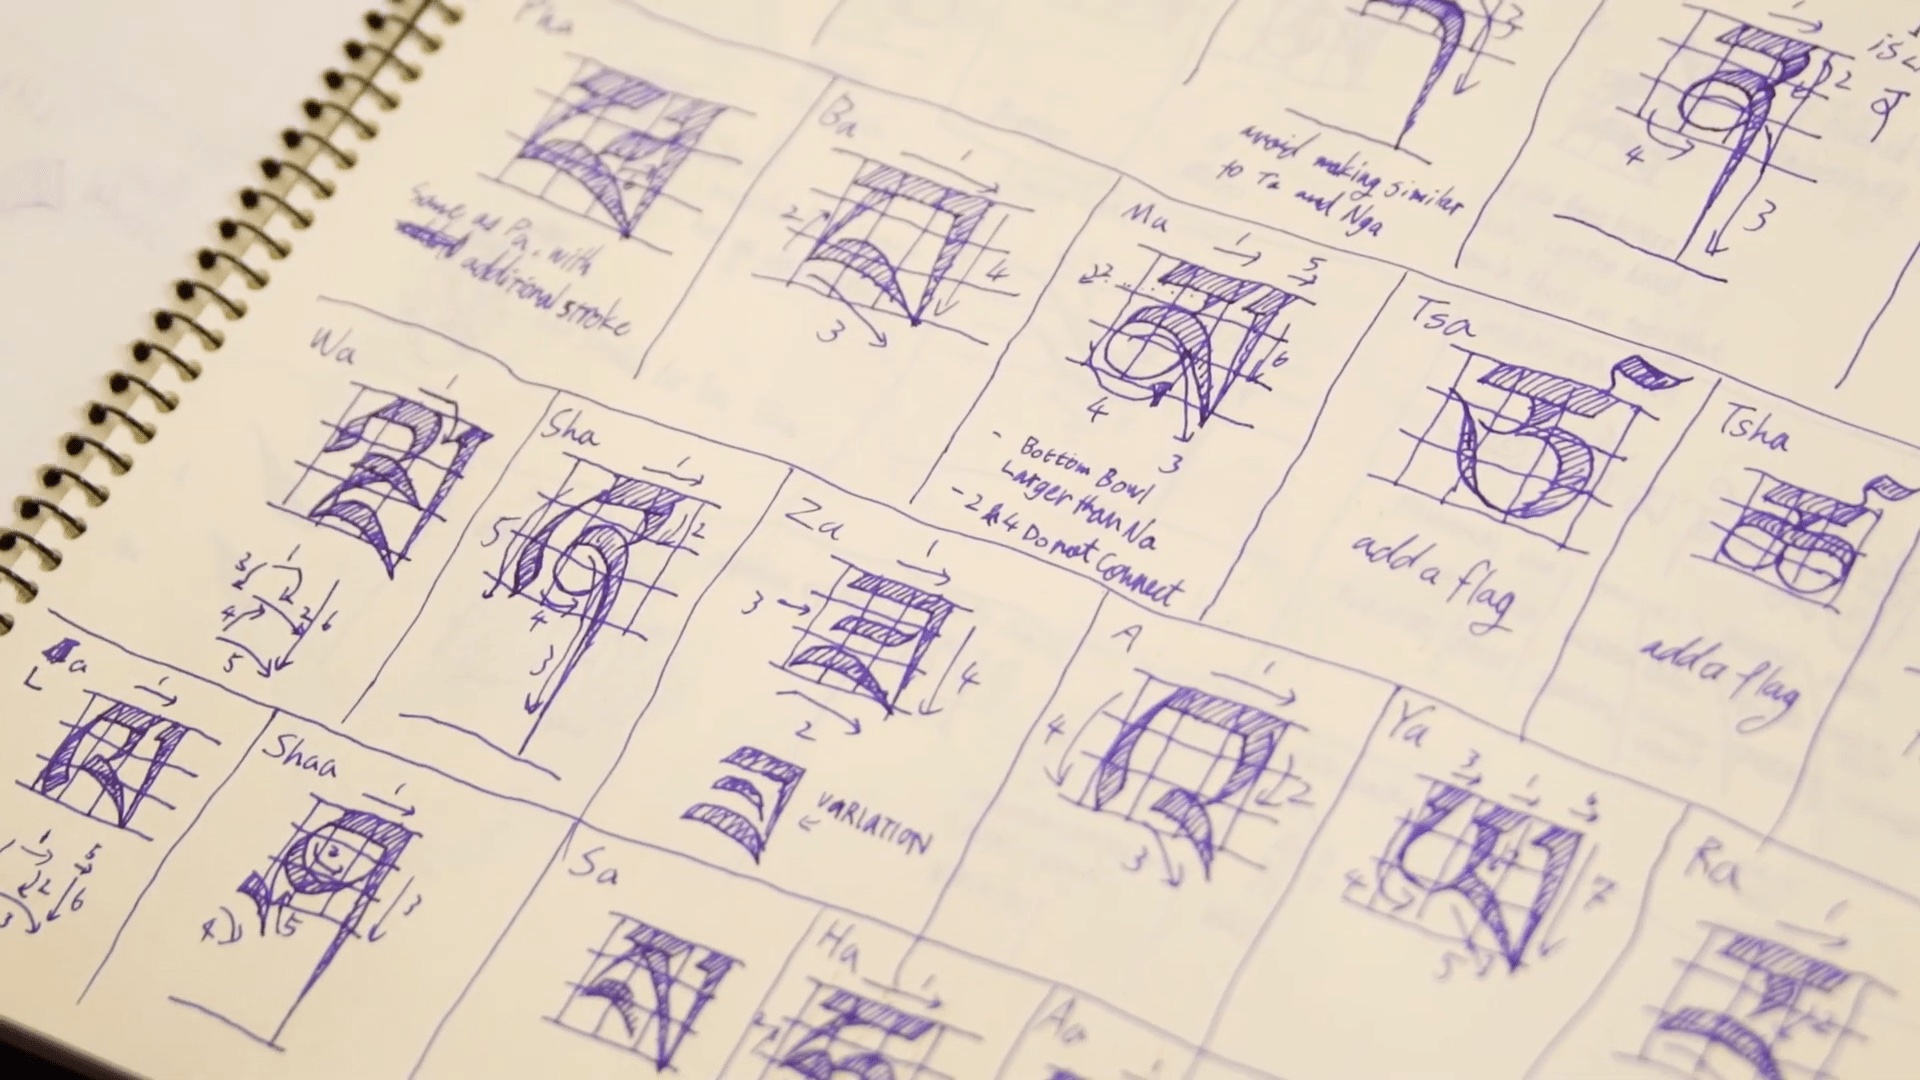 Pha
Same as Pa. with
additional stroke
Ba
1
2
4
3
avoid making similar
to Ta and Nga
3
1
2
4
3
Ma
1
5
2
6
4
3
- Bottom Bowl
Larger than Na
- 2 & 4 Do not Connect
Tsa
add a flag
Tsha
add a flag
Wa
1
3
1
2
4
2
6
5
Sha
1
2
5
4
3
Za
1
3
4
2
← VARIATION
A
1
4
2
3
Ya
3
1
4
7
La
1
1
5
2
6
3
Shaa
1
2
3
4
5
Sa
Ha
1
2
Ra
1